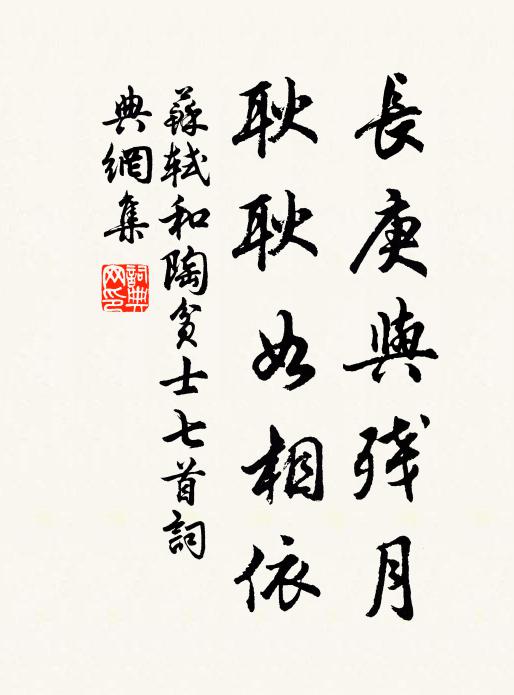 長庚與残月
耿耿如相依
蘇軾和陶貧士七首詞
典網集
詞典
网印